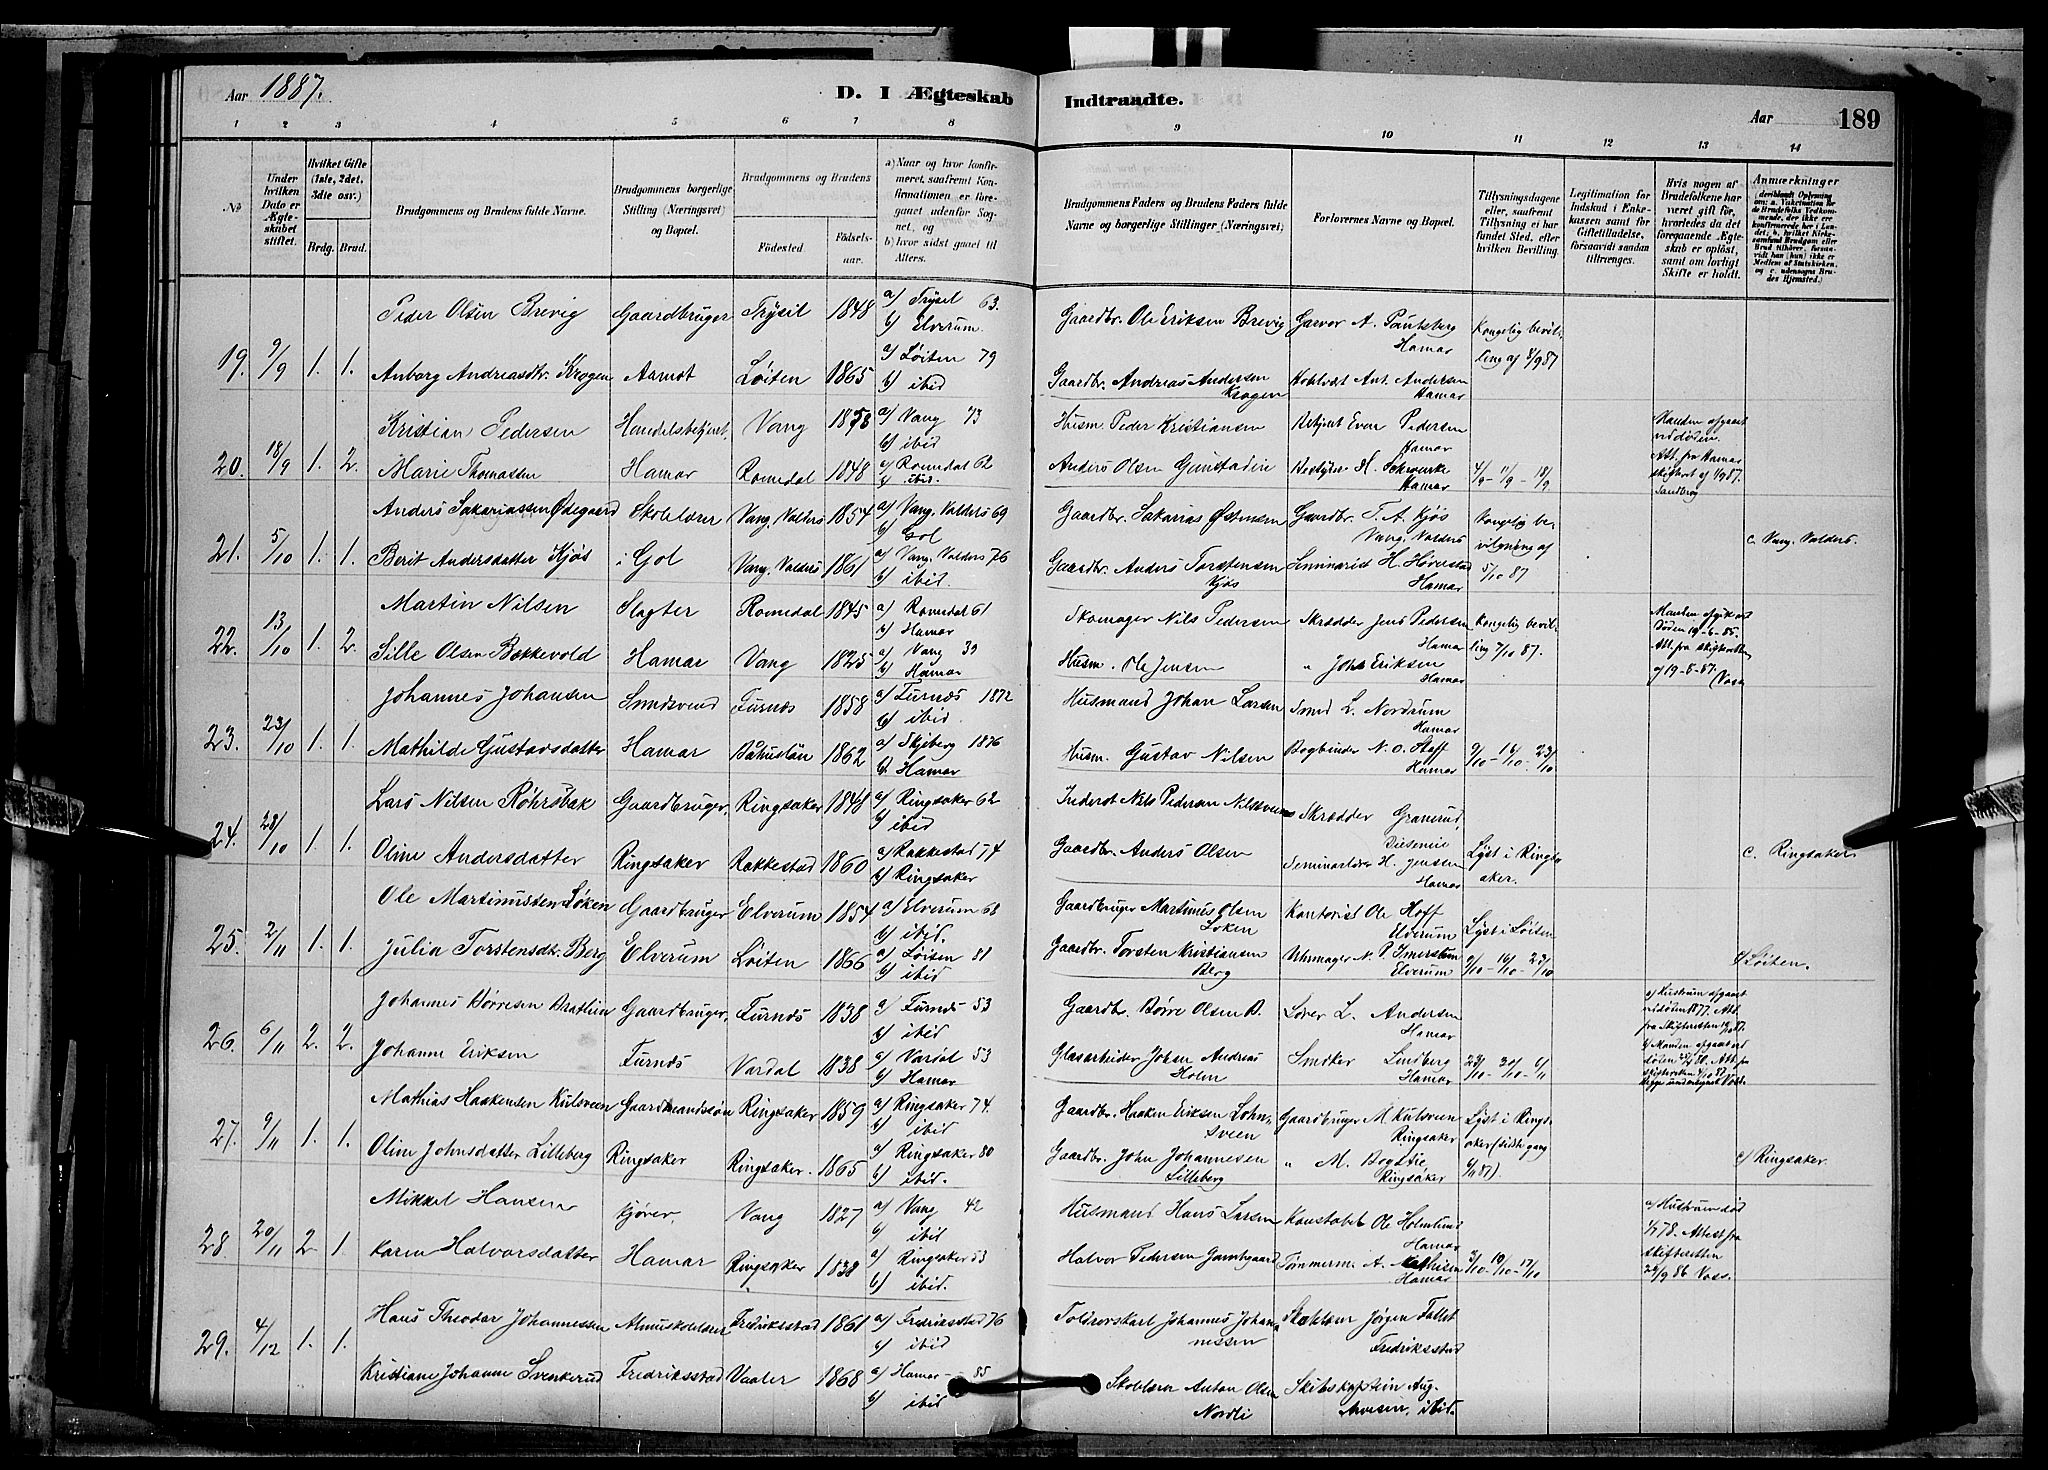 Aar 1887.
D. I Ægteskab Indtraadte.
Aar 189
1 2 3 4 5 6 7 8 9 10 11 12 13 14
No.
Under hvilken Dato er Ægteskabet stiftet.
Hvilket Gifte (1ste, 2det, 3dte osv.)
Brdg. Brud.
Brudgommens og Brudens fulde Navne.
Brudgommens borgerlige Stilling (Næringsvei) og Bopæl.
Brudgommens og Brudens
Fødested. Fødselsaar.
a) Naar og hvor konfirmeret, saafremt Konfirmationen er foregaaet udenfor Sognet, og
b) hvor sidst gaaet til Alters.
Brudgommens Faders og Brudens Faders fulde Navne og borgerlige Stillinger (Næringsvei)
Forlovernes Navne og Bopæl.
Tillysningsdagene eller, saafremt Tillysning ei har fundet Sted, efter hvilken Bevilling.
Legitimation for Indskud i Enkekassen samt for Giftetilladelse, forsaavidt saadan tiltrænges.
Hvis nogen af Brudefolkene har været gift før, hvorledes da det foregaaende Ægteskab er opløst, samt om lovligt Skifte er holdt.
Anmærkninger
Peder Olsen Brevig Gaardbruger Trysil 1848 a) Trysil 63. b) Elverum. Gaardbr. Ole Eriksen Brevig Garver A. Pautsberg Hamar Kongelig bevilling af 8/9 87
19. 9/9 1. 1. Anborg Andreasdtr. Krogen Aamot Löiten 1865 a) Löiten 79 b) ibid Gaardbr. Andreas Andersen Krogen Ant. Andersen Hamar
Kristian Pedersen Handelsbetjent, Vang a) Vang 73 b) ibid Husm. Peder Kristiansen Betjent Even Pedersen Hamar
20. 18/9 1. 2. Marie Thomassen Hamar Romedal 1848 a) Romedal 62 b) ibid. Anders Olsen Hamar 4/9 - 11/9 - 18/9 Manden afgaaet ved døden. Att. fra Hamar skifteret af 1/9 87. Sandberg
Anders Sakariassen Ødegaard Skolelærer Vang, Valders 1854 a) Vang, Valders 69 b) Gol Gaardbr. Sakarias Østensen Gaardbr. T. A. Kjös Vang, Valders Kongelig bevilgning af 5/10 87
21. 5/10 1. 1. Berit Andersdatter Kjös i Gol Vang, Valders 1861 a) Vang, Valders 76 b) ibid. Gaardbr. Anders Torstensen Kjös Seminarist H. Hamar c. Vang, Valders.
Martin Nilsen Slagter Romedal 1845 a) Romedal 61 b) Hamar Skomager Nils Pedersen Skrædder Jens Pedersen Hamar Kongelig bevilling 7/10 87.
22. 13/10 1. 2. Sille Olsen Bekkevold Hamar Vang 1825 a) Vang 39 b) Hamar Husm. Ole Jensen " Joh. Eriksen Hamar Døden 19-6-85. Att. fra skifteretten
Johannes Johansen Smedsvend Furnes 1858 a) Furnes 1872 b) ibid. Husmand Johan Larsen Smed L. Nordrum Hamar
23. 23/10 1. 1. Mathilde Gustavsdatter Hamar Båhuslän 1862 a) Skjeberg 1876 b. Hamar Husm. Gustav Nilsen Bogbinder N. O. Staff Hamar 9/10 - 16/10 - 23/10
Lars Nilsen Röhrsbak Gaardbruger, Ringsaker 1848 a) Ringsaker 62 b) ibid Inderst Nils Pedersen Nilssveen Skrædder Granerud,
24. 28/10 1. 1. Oline Andersdatter Ringsaker Rakkestad 1860 a) Rakkestad 74 b) Ringsaker Gaardbr. Anders Olsen Seminarlærer H. Jenssen Hamar Lyst i Ringsaker. c. Ringsaker
Ole Martinussen Löken Gaardbruger Elverum 1854 a) Elverum 68 b) ibid. Gaardbruger Martinus Olsen Loken Kontorist Ole Hoff Elverum Lyst i Löiten
25. 2/11 1. 1. Julia Torstensdtr. Berg Elverum Löiten 1866 a) Löiten 81 b) ibid Gaardbr. Torsten Kristiansen Berg Uhrmager N. P. Elverum 9/10 - 16/10 - 23/10 Löiten.
Johannes Börresen Brathen Gaardbruger, Furnes 1838 a) Furnes 53 b) ibid Gaardbr. Börre Olsen B. L. Andersen Hamar
26. 6/11 2. 2. Johanne Eriksen Furnes Vardal 1838 a) Vardal 53 b) Hamar Glasarbeider Johan Andreas Holm Snedker Lindberg Hamar 23/10 - 30/10 - 6/11
Mathias Haakensen Kulsveen Gaardmandssøn Ringsaker 1859 a) Ringsaker 74. b) ibid Gaardbr. Haaken Eriksen Gaardbruger M. Kulsveen Ringsaker Lyst i Ringsaker (sidste gang 6/11 87).
27. 9/11 1. 1. Oline Johnsdatter Lilleberg Ringsaker Ringsaker. 1865 a) Ringsaker 80 b) ibid. Gaardbr. John Johannesen Lilleberg " M. Ringsaker c) Ringsaker.
Mikkel Hansen Kjører, Vang 1827 a) Vang 42 b) ibid Husmand Hans Larsen Konstabel Ole Holmlund Hamar
28. 20/11 2. 1. Karen Halvorsdatter Hamar Ringsaker 1838 a) Ringsaker 53 b) ibid. Halvor Pedersen Tømmerm. A. Mathisen Hamar 3/10 - 10/10 - 17/10 a) Hustruen død 78. Attest fra skifteretten 22/9 86 Voss.
Hans Theodor Johannessen Almueskolelærer Fredriksstad 1861 a) Fredriksstad 76 b) ibid Toldrorskarl Johannes Johannessen Skolelærer Jörgen Fredriksstad
29. 4/12 1. 1. Kristiane Johanne Svenkerud Fredriksstad Vaaler 1868 a) Hamar - 85 b) ibid Skolelærer Anton Olsen Nordli Skibskaptein Aug. Arvesen, ibid.